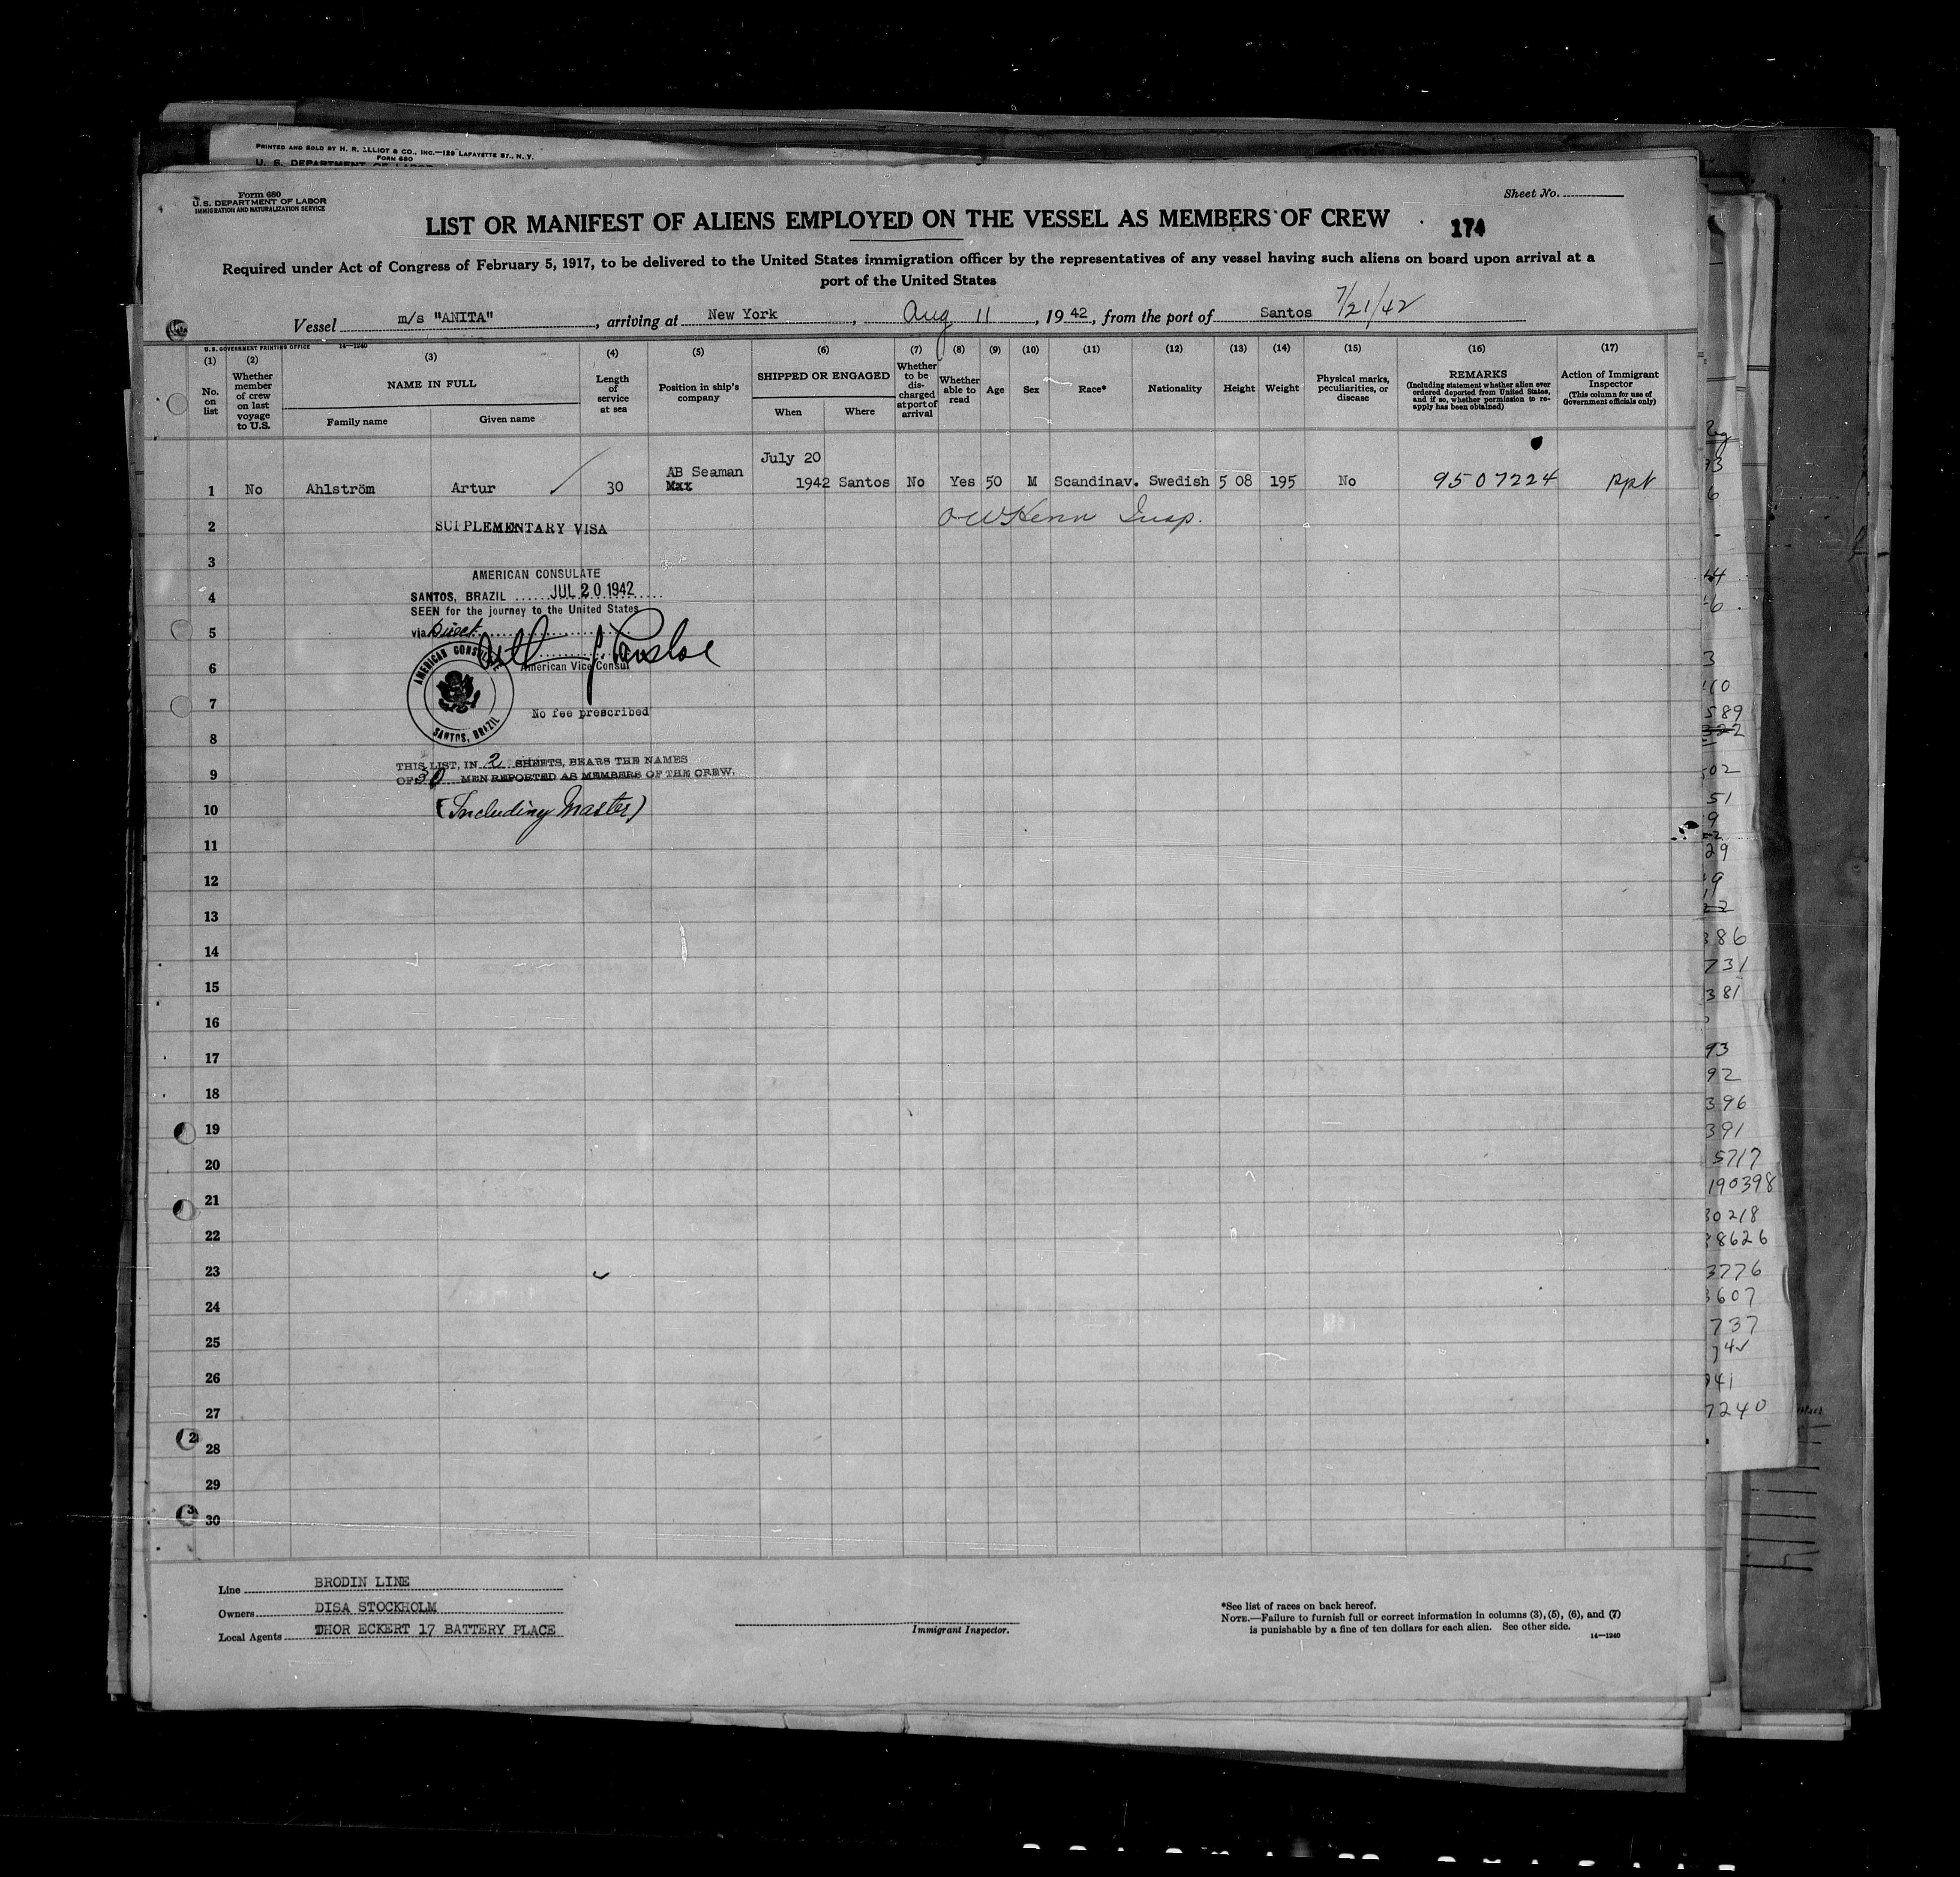 PRINTED AND SOLD BY H. R. ELLIOT & CO., INC.—129 LAFAYETTE ST., N. Y.
Form 680
U. S. DEPARTMENT OF LABOR
Form 680
U. S. DEPARTMENT OF LABOR
IMMIGRATION AND NATURALIZATION SERVICE
Sheet No.
LIST OR MANIFEST OF ALIENS EMPLOYED ON THE VESSEL AS MEMBERS OF CREW
174
Required under Act of Congress of February 5, 1917, to be delivered to the United States immigration officer by the representatives of any vessel having such aliens on board upon arrival at a
port of the United States
Vessel m/s "ANITA", arriving at New York, Aug 11, 1942, from the port of Santos 7/21/42
U. S. GOVERNMENT PRINTING OFFICE 14—1240
(1) No. on list
(2) Whether member of crew on last voyage to U.S.
(3) NAME IN FULL
Family name Given name
(4) Length of service at sea
(5) Position in ship's company
(6) SHIPPED OR ENGAGED
When Where
(7) Whether to be discharged at port of arrival
(8) Whether able to read
(9) Age
(10) Sex
(11) Race*
(12) Nationality
(13) Height
(14) Weight
(15) Physical marks, peculiarities, or disease
(16) REMARKS
(Including statement whether alien ever ordered deported from United States, and if so, whether permission to re-apply has been obtained)
(17) Action of Immigrant Inspector
(This column for use of Government officials only)
1 No Ahlström Artur 30 AB Seaman July 20 1942 Santos No Yes 50 M Scandinav. Swedish 5 08 195 No 9507224 Ppt
2 SUPPLEMENTARY VISA Insp.
3
AMERICAN CONSULATE
4 SANTOS, BRAZIL JUL 20 1942
SEEN for the journey to the United States
5 via Direct
6 American Vice Consul
AMERICAN CONSULATE
SANTOS, BRAZIL
7 No fee prescribed
8
THIS LIST, IN 2 SHEETS, BEARS THE NAMES
9 OF 30 MEN REPORTED AS MEMBERS OF THE CREW.
10 (Including Master)
11
12
13
14
15
16
17
18
19
20
21
22
23
24
25
26
27
28
29
30
Line BRODIN LINE
Owners DISA STOCKHOLM
Local Agents THOR ECKERT 17 BATTERY PLACE
Immigrant Inspector.
*See list of races on back hereof.
NOTE.—Failure to furnish full or correct information in columns (3), (5), (6), and (7)
is punishable by a fine of ten dollars for each alien. See other side.
14—1240
589
02
51
29
386
731
381
93
92
396
391
5717
190398
30218
38626
3776
3607
737
41
7240